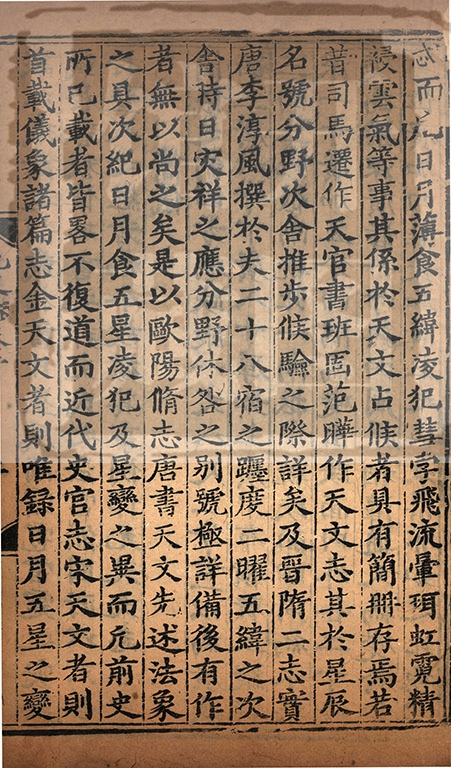 志而凡日月薄食五緯凌犯彗孛飛流暈珥虹霓精
祲雲氣等事其係於天文占候者具有簡冊存焉若
昔司馬遷作天官書班固范曄作天文志其於星辰
名號分野次舍推步候驗之際詳矣及晉隋二志實
唐李淳風撰於夫二十八宿之躔度二曜五緯之次
舍時日灾祥之應分野休咎之別號極詳備後有作
者無以尚之矣是以歐陽脩志唐書天文先述法象
之具次紀日月食五星凌犯及星變之異而凡前史
所已載者皆畧不復道而近代史官志宋天文者則
首載儀象諸篇志金天文者則唯録日月五星之變